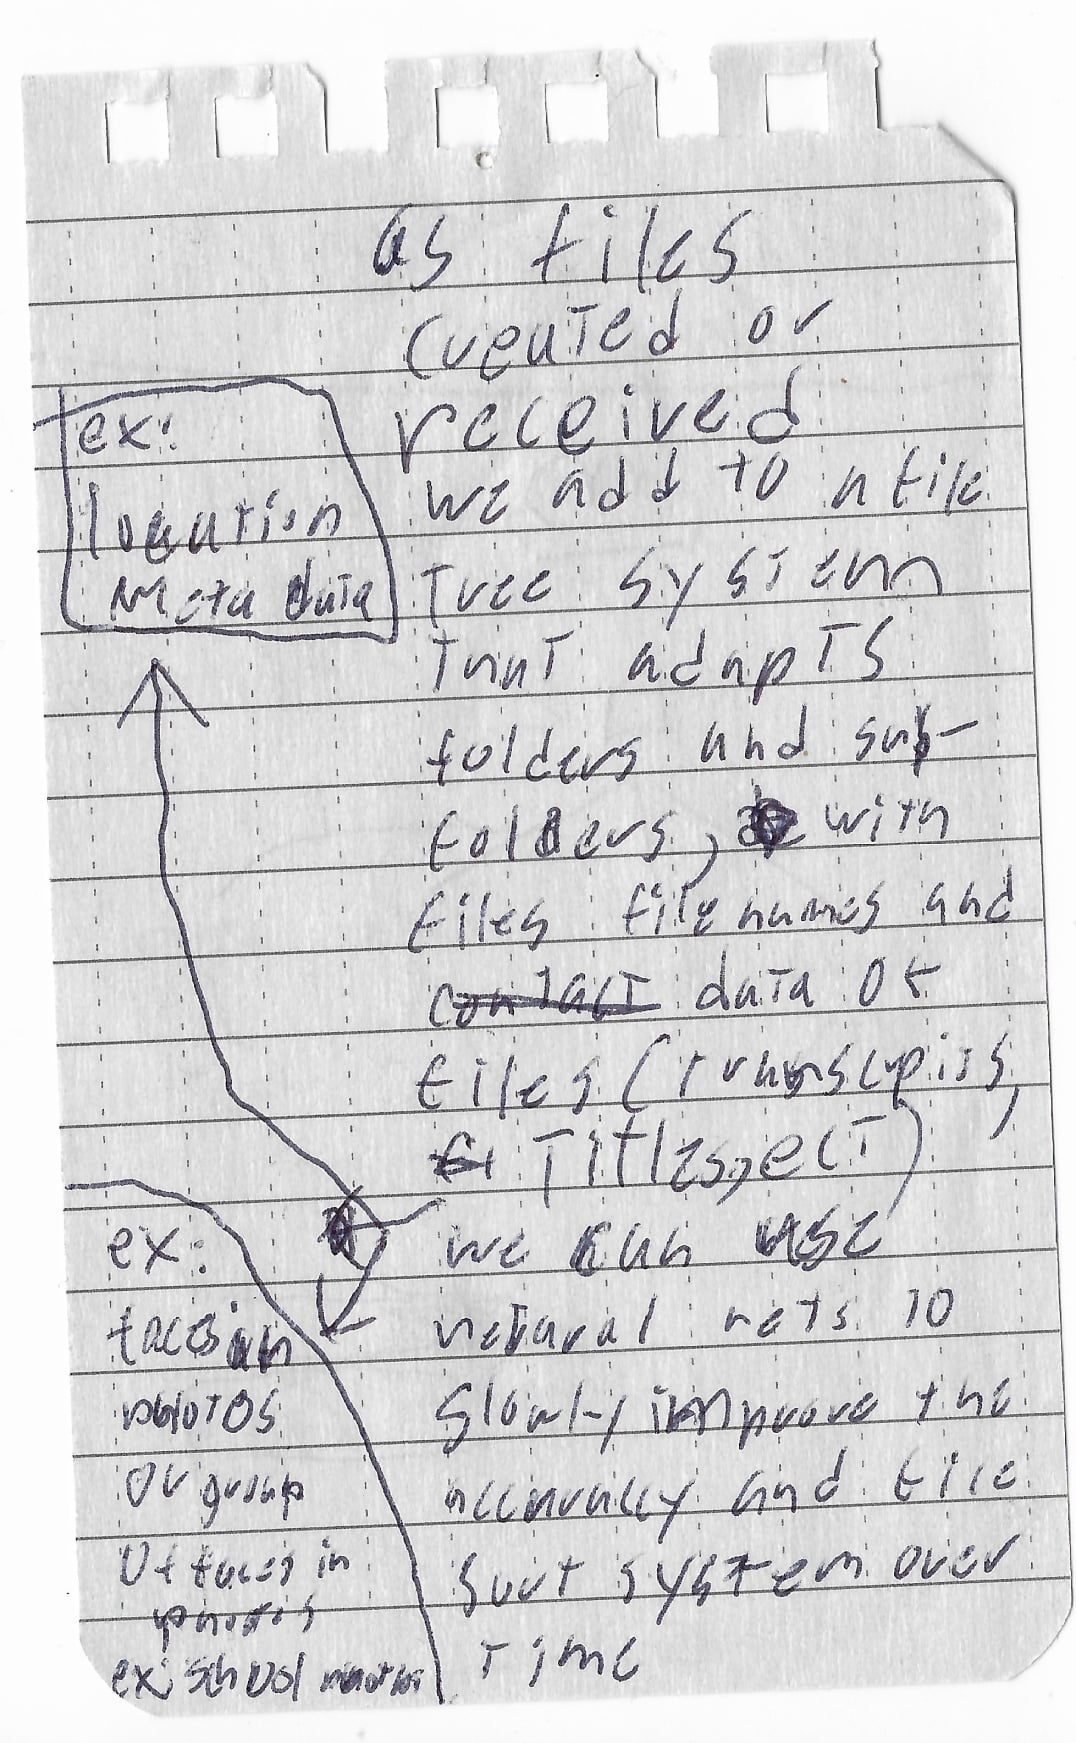 as files
created or
received
we add to a file
tree system
that adapts
folders and sub-
folders, with
files filenames and
contact data of
files (transcpits,
Titles, ect)
we can use
natural nets to
slowly improve the
accuracy and file
sort system over
time
ex:
location
Meta data
ex:
faces in
photos
or group
of faces in
photos
ex: school